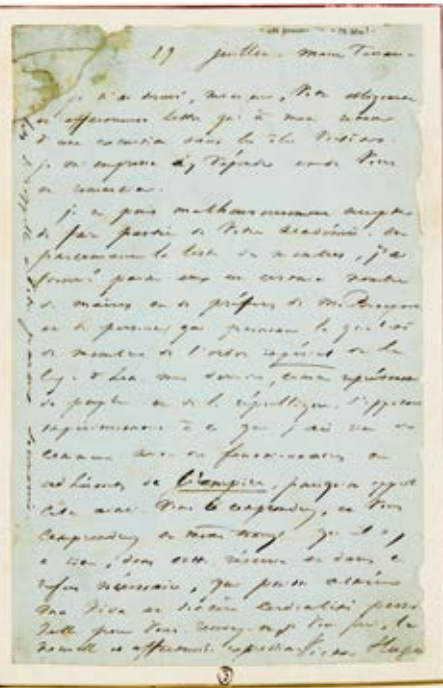 29 juillet - Marine Terrace -
je reçois, monsieur, votre obligeante
et affectueuse lettre qui
d'une excursion dans les îles voisines.
je m'empresse d'y répondre et de vous
en remercier.
je ne puis malheureusement accepter
de faire partie de votre académie, en
parcourant la liste des membres, j'ai
trouvé parmi eux un certain nombre
de maires et de préfets de M. Bonaparte
et de personnes qui prennent la qualité
de membre de l'ordre impérial de la
lég. d'hon. mon devoir, comme représentant
du peuple et de la république, s'oppose
impérieusement à ce que j'aie rien de
commun avec des fonctionnaires ou
adhérents de l'empire, puisqu'on appelle
cela ainsi. Vous le comprendrez, et vous
comprendrez en même temps qu'il n'y
a rien, dans cette réserve et dans ce
refus nécessaire, qui puisse altérer
ma vive et sincère cordialité person-
nelle pour vous. recevez-en, je vous prie, la
nouvelle et affectueuse expression Victor Hugo
3